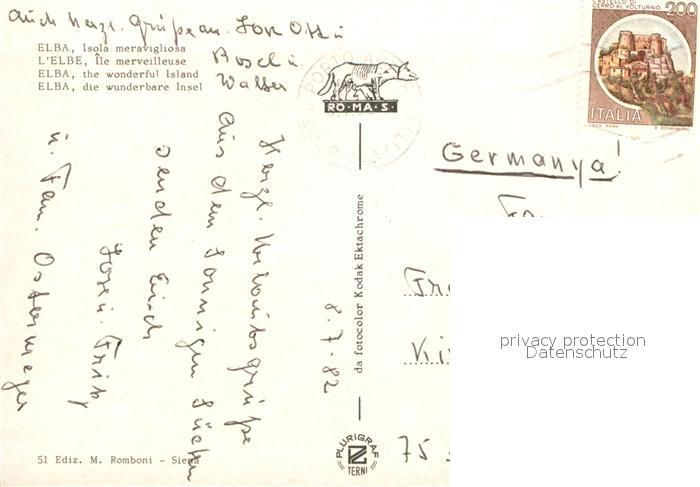 auch herzl. Grüße an.
ELBA, Isola meravigliosa
L'ELBE, Île merveilleuse
ELBA, the wonderful Island
ELBA, die wunderbare Insel
Walter
Herzl. Urlaubsgrüße
aus dem sonnigen Süden
senden Euch
u. Fam. Ostermeyer
8.7.82
51 Ediz. M. Romboni - Siena
RO·MA·S·
da fotocolor Kodak Ektachrome
PLURIGRAF
TERNI
CASTELLO DI
CERRO AL VOLTURNO
200
ITALIA
Germanya!
privacy protection
Datenschutz
75